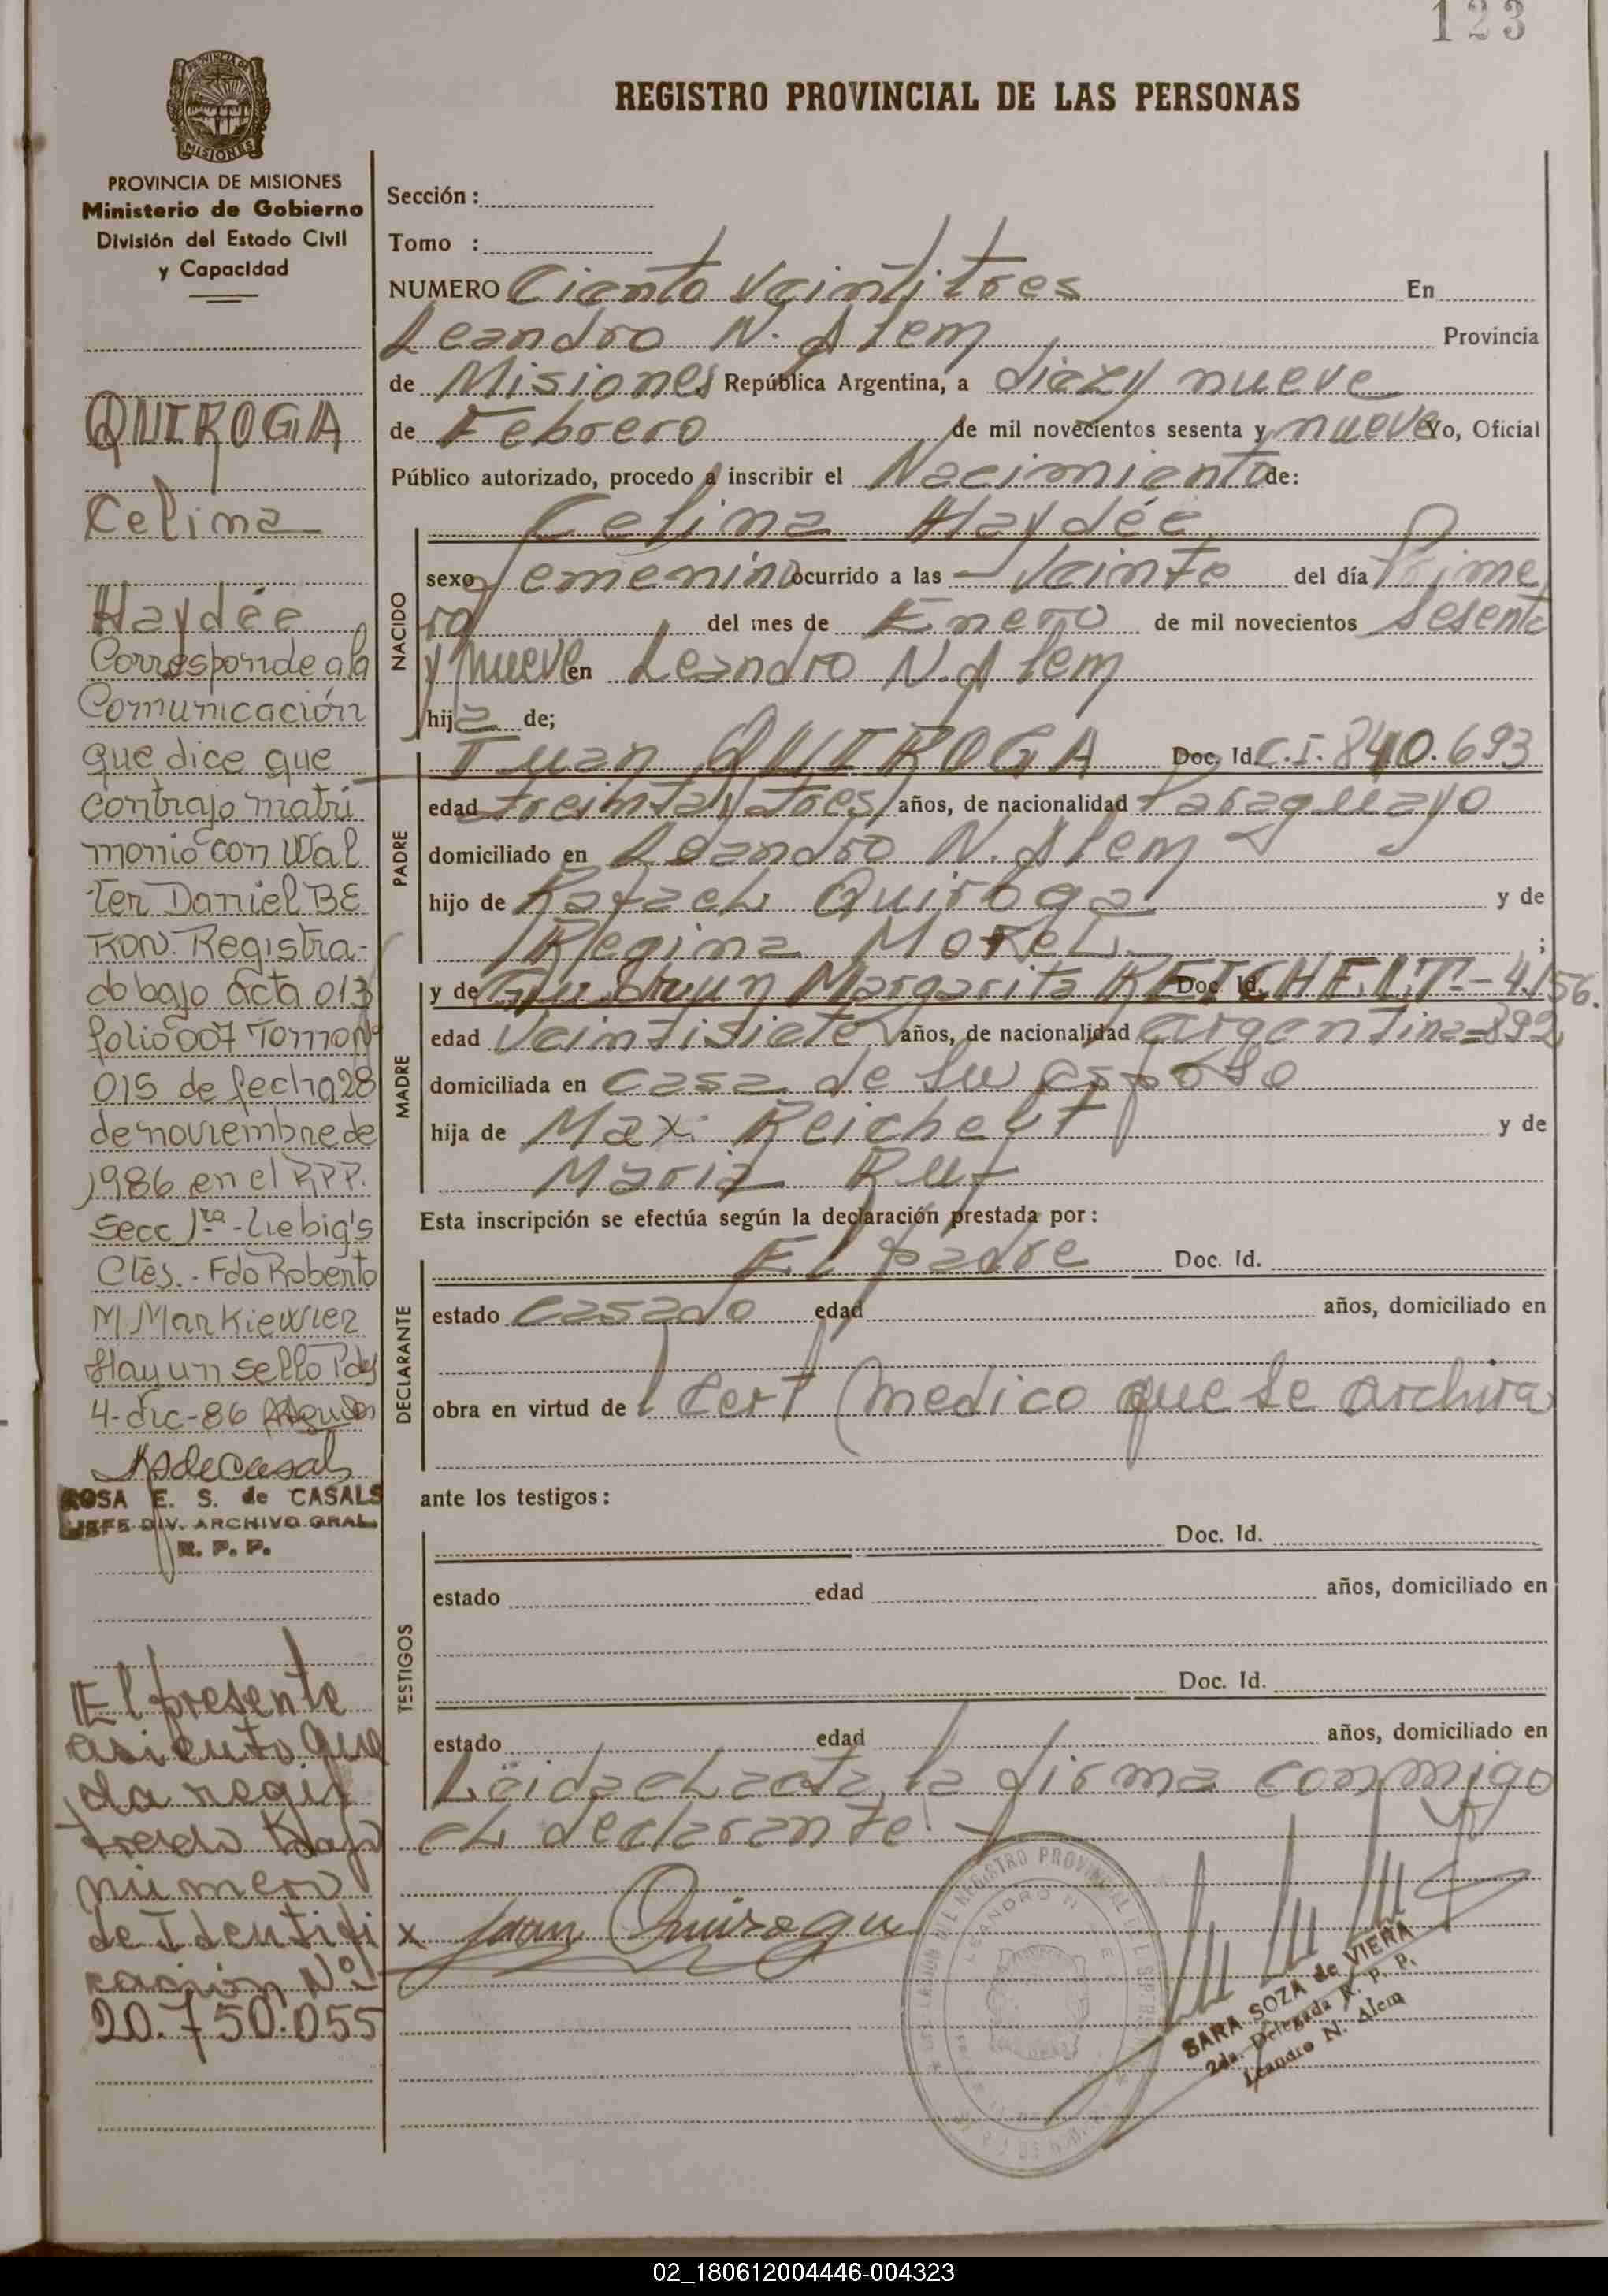 123
REGISTRO PROVINCIAL DE LAS PERSONAS
PROVINCIA DE MISIONES
Ministerio de Gobierno
División del Estado Civil
y Capacidad
QUIROGA
Celina
Haydée
Corresponde a la
Comunicación
que dice que
contrajo matri
monio con Wal
ter Daniel BE
RON. Registra-
do bajo acta 013
folio 007 Tomo Nº
015 de fecha 28
de noviembre de
1986 en el RPP.
Secc 1ra - Liebig's
Ctes. - Fdo Roberto
M. Markiewiez
Hay un sello Pdas
4-dic-86
ROSA E. S. de CASALS
JEFE DIV. ARCHIVO GRAL.
R. P. P.
El presente
asiento que
da regis
trado bajo
número
de Identifi
cación Nº
20.750.055
Sección :
Tomo :
NUMERO Ciento Veintitres En
Leandro N. Alem Provincia
de Misiones República Argentina, a diez y nueve
de Febrero de mil novecientos sesenta y nueve Yo, Oficial
Público autorizado, procedo a inscribir el Nacimiento de:
NACIDO
Celina Haydée
sexo femenino ocurrido a las - Veinte del día Prime
ro del mes de Enero de mil novecientos Sesenta
y nueve en Leandro N. Alem
hija de;
PADRE
Juan QUIROGA Doc. Id. C.I. 840.693
edad treinta y tres años, de nacionalidad Paraguayo
domiciliado en Leandro N. Alem
hijo de Rafael Quiroga y de
Regina Morel ;
MADRE
y de Gudrun Margarita REICHELT Doc. Id. - 4.156.
edad Veintisiete años, de nacionalidad argentina = 892
domiciliada en casa de su esposo
hija de Max Reichelt y de
Maria Ruf
Esta inscripción se efectúa según la declaración prestada por :
DECLARANTE
El padre Doc. Id.
estado casado edad años, domiciliado en
obra en virtud de Cert medico que se archiva
ante los testigos :
TESTIGOS
Doc. Id.
estado edad años, domiciliado en
Doc. Id.
estado edad años, domiciliado en
Leida el acta, la firma conmigo
el declarante.
x Juan Quiroga
SARA SOZA de VIERA
2da. Delegada R. P. P.
Leandro N. Alem
02_180612004446-004323